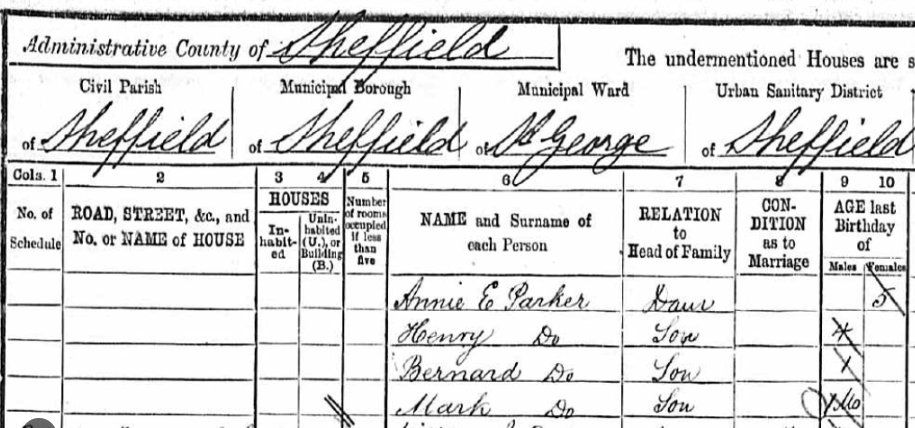 Administrative County of Sheffield
The undermentioned Houses are s
Civil Parish Municipal Borough Municipal Ward Urban Sanitary District
of Sheffield of Sheffield of St George of Sheffield
Cols. 1 2 3 4 5 6 7 8 9 10
No. of Schedule
ROAD, STREET, &c., and No. or NAME of HOUSE
HOUSES
In-habit-ed
Unin-habited (U.), or Building (B.)
Number of rooms occupied if less than five
NAME and Surname of each Person
RELATION to Head of Family
CON-DITION as to Marriage
AGE last Birthday of
Males Females
Annie E Parker Daur 5
Henry Do Son 4
Bernard Do Son 1
Mark Do Son 1 Mo